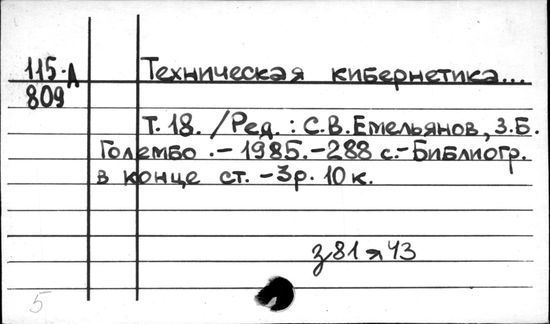 115-А Техническая кибернетика...
809
Т. 18. /Ред.: С.В. Емельянов, З.Б.
Голембо .- 1985.-288 с.- Библиогр.
в конце ст. - 3р. 10 к.
з81я43
5